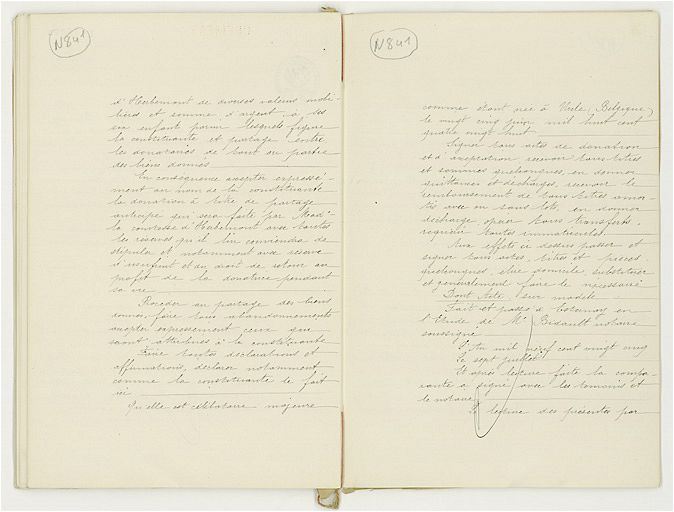 N841
d'Herbemont de diverses valeurs mobi-
lières et somme d'argent, à ses
six enfants parmi lesquels figure
la constituante et partage entre
les donataires de tout ou partie
des biens donnés.
En conséquence accepter expressé-
ment au nom de la constituante
la donation à titre de partage
anticipé qui sera faite par Mad
la comtesse d'Herbemont avec toutes
les réserves qu'il lui conviendra de
stipuler et notamment avec réserve
d'usufruit et du droit de retour au
profit de la donatrice pendant
sa vie
Procéder au partage des biens
donnés, faire tous abandonnements
accepter expressement ceux qui
seront attribués à la constituante
Faire toutes déclarations et
affirmations, déclarer notamment
comme la constituante le fait
ici
Qu'elle est célibataire majeure
N841
comme étant née à Uccle, (Belgique)
le vingt cinq juin mil huit cent
quatre vingt huit
Signer tous actes de donation
et d'acceptation recevoir tous titres
et sommes quelconques, en donner
quittances et décharges, recevoir le
remboursement de tous titres amor-
tis avec ou sans lots, en donner
décharge opérer tous transferts,
requérir toutes immatricules.
Aux effets ci dessus passer et
signer tous actes, titres et pièces
quelconques, élire domicile substituer
et généralement faire le nécessaire
Dont Acte, sur modèle
Fait et passé à
l'Etude de Me notaire
soussigné
L'an mil neuf cent vingt cinq
Le sept juillet
Et après lecture faite la compa-
rante a signé avec les témoins et
le notaire
La lecture des présentes par